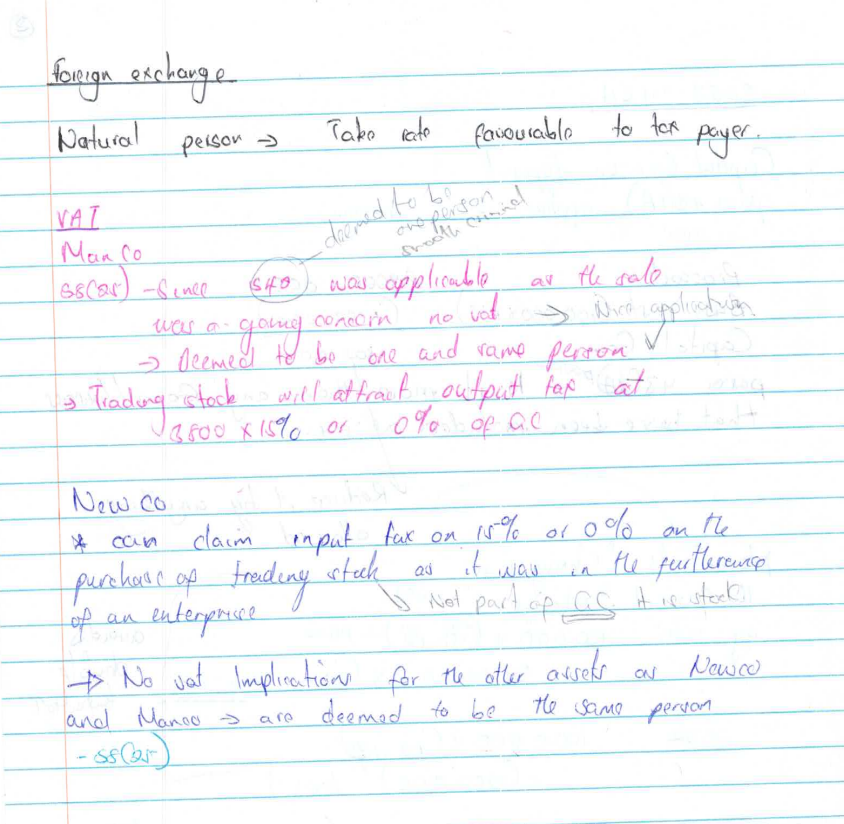 Foreign exchange
Natural person → Take rate favourable to tax payer.
VAT
deemed to be
one person
smooth criminal
Man Co
SS(25) - Since S42 was applicable as the sale
was a going concern no vat → Nice application
→ Deemed to be one and same person ✓
→ Trading stock will attract output tax at
3800 x 15% or 0% of G.C
New co
* can claim input tax on 15% or 0% on the
purchase of trading stock as it was in the furtherance
of an enterprise
↳ Not part of G.C. it is stock
→ No vat Implications for the other assets as Newco
and Manco → are deemed to be the same person
- SS(25)